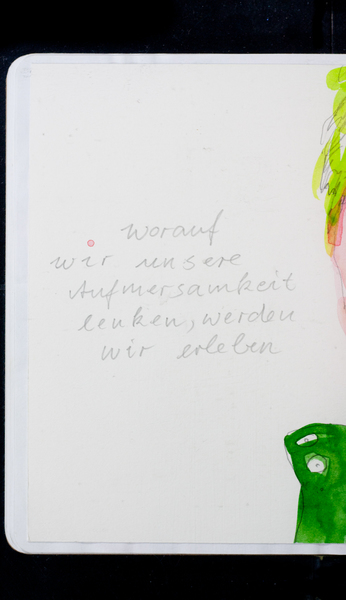 worauf
wir unsere
Aufmersamkeit
lenken, werden
wir erleben